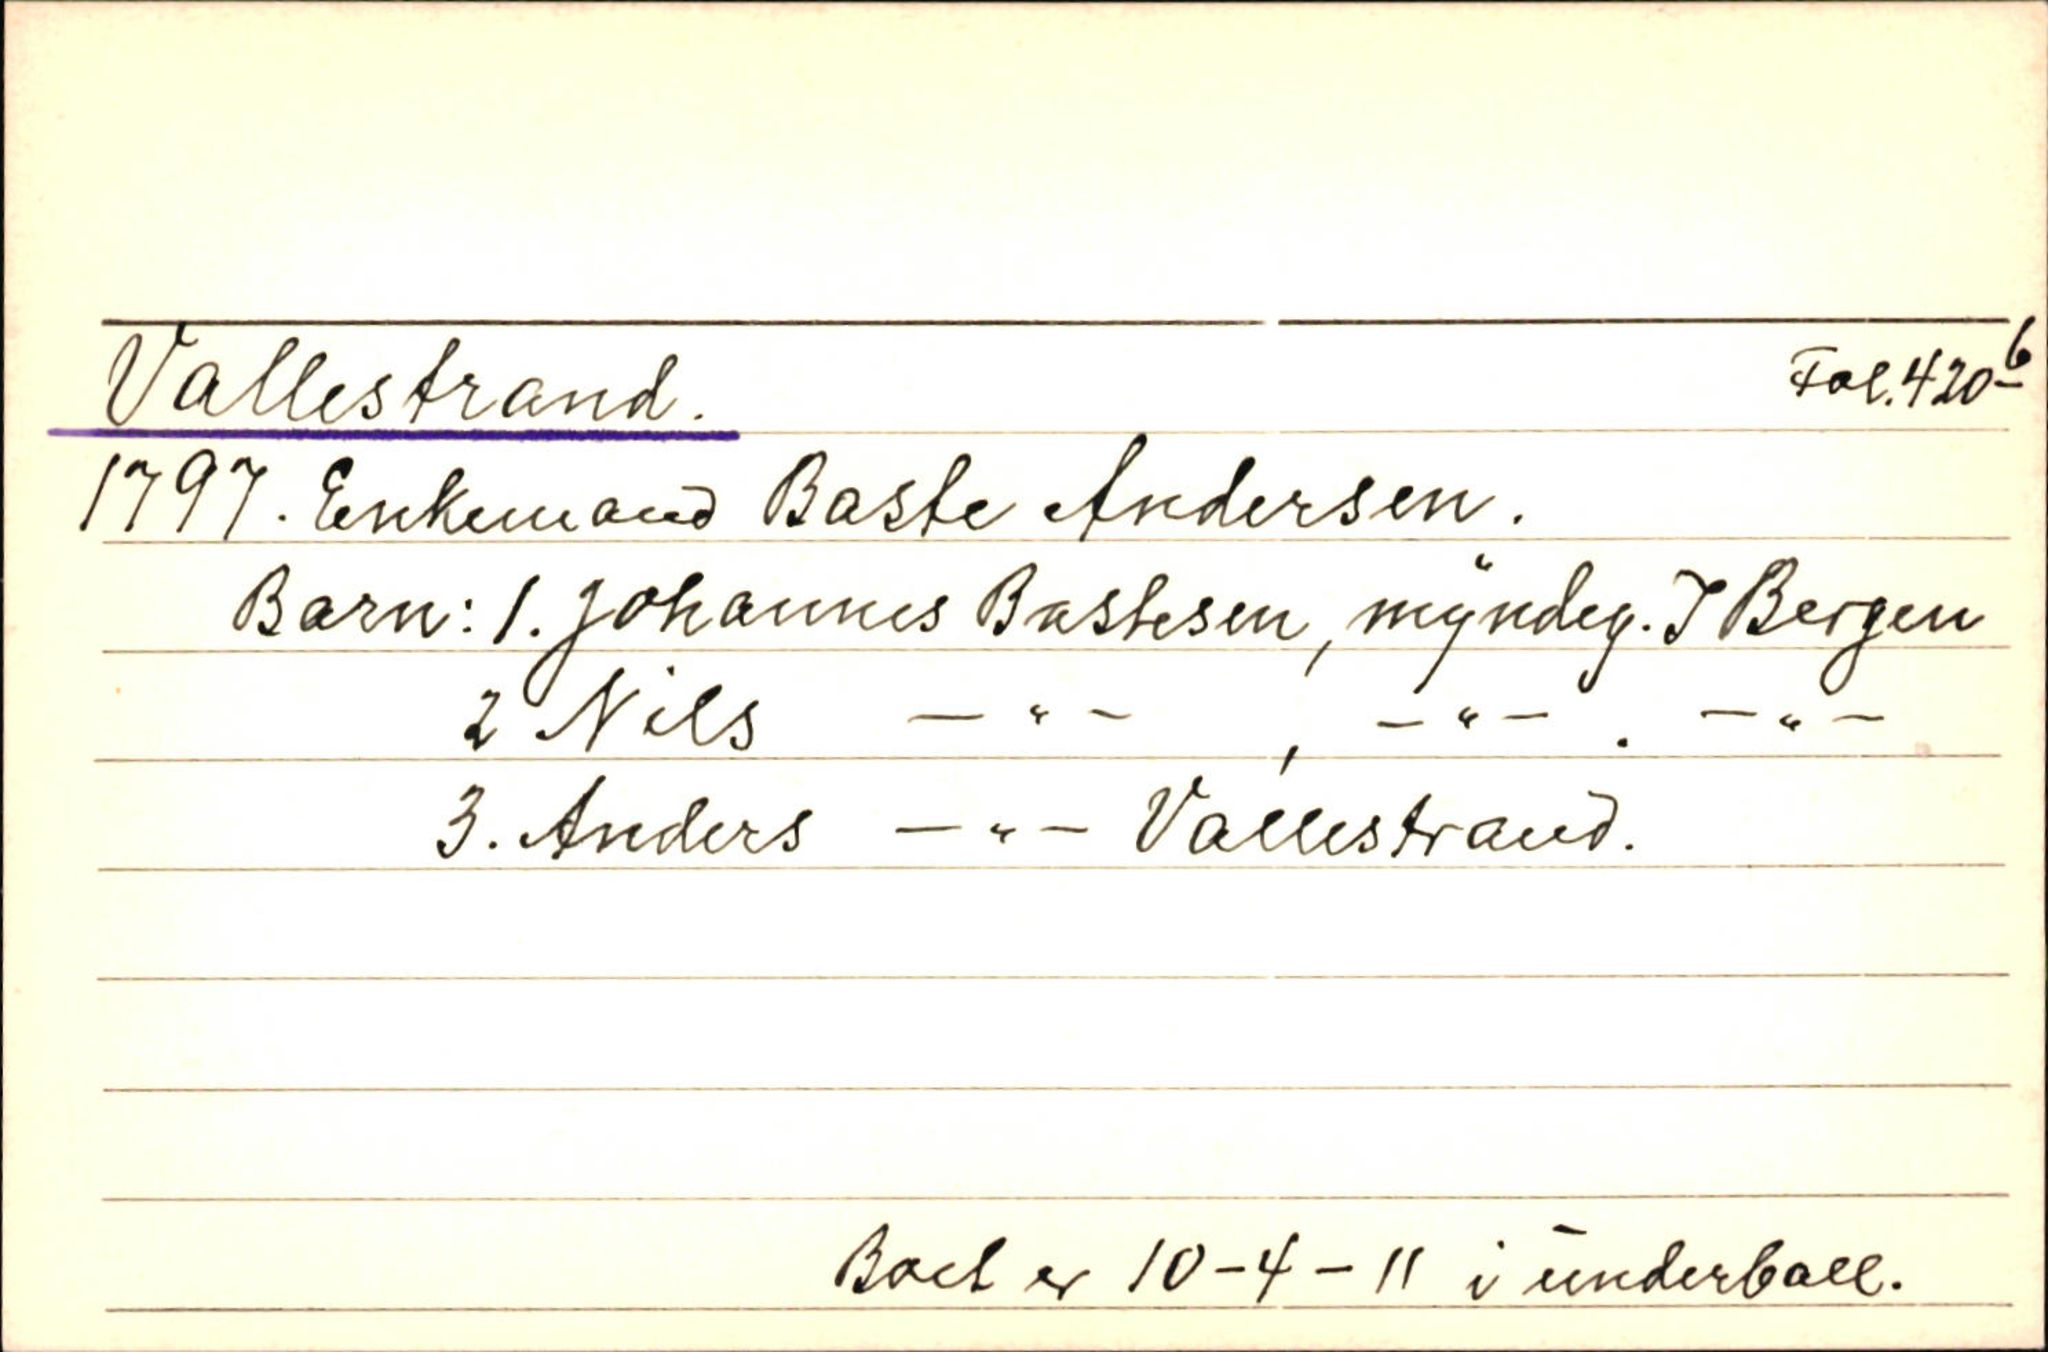 Vallestrand. Fol. 420b
1797. Enkemand Baste Andersen.
Barn: 1. Johannes Bastesen, myndig. I Bergen
2 Nils —"— , —"— . —"—
3. Anders —"— Vallestrand.
Boet er 10-4-11 i underball.